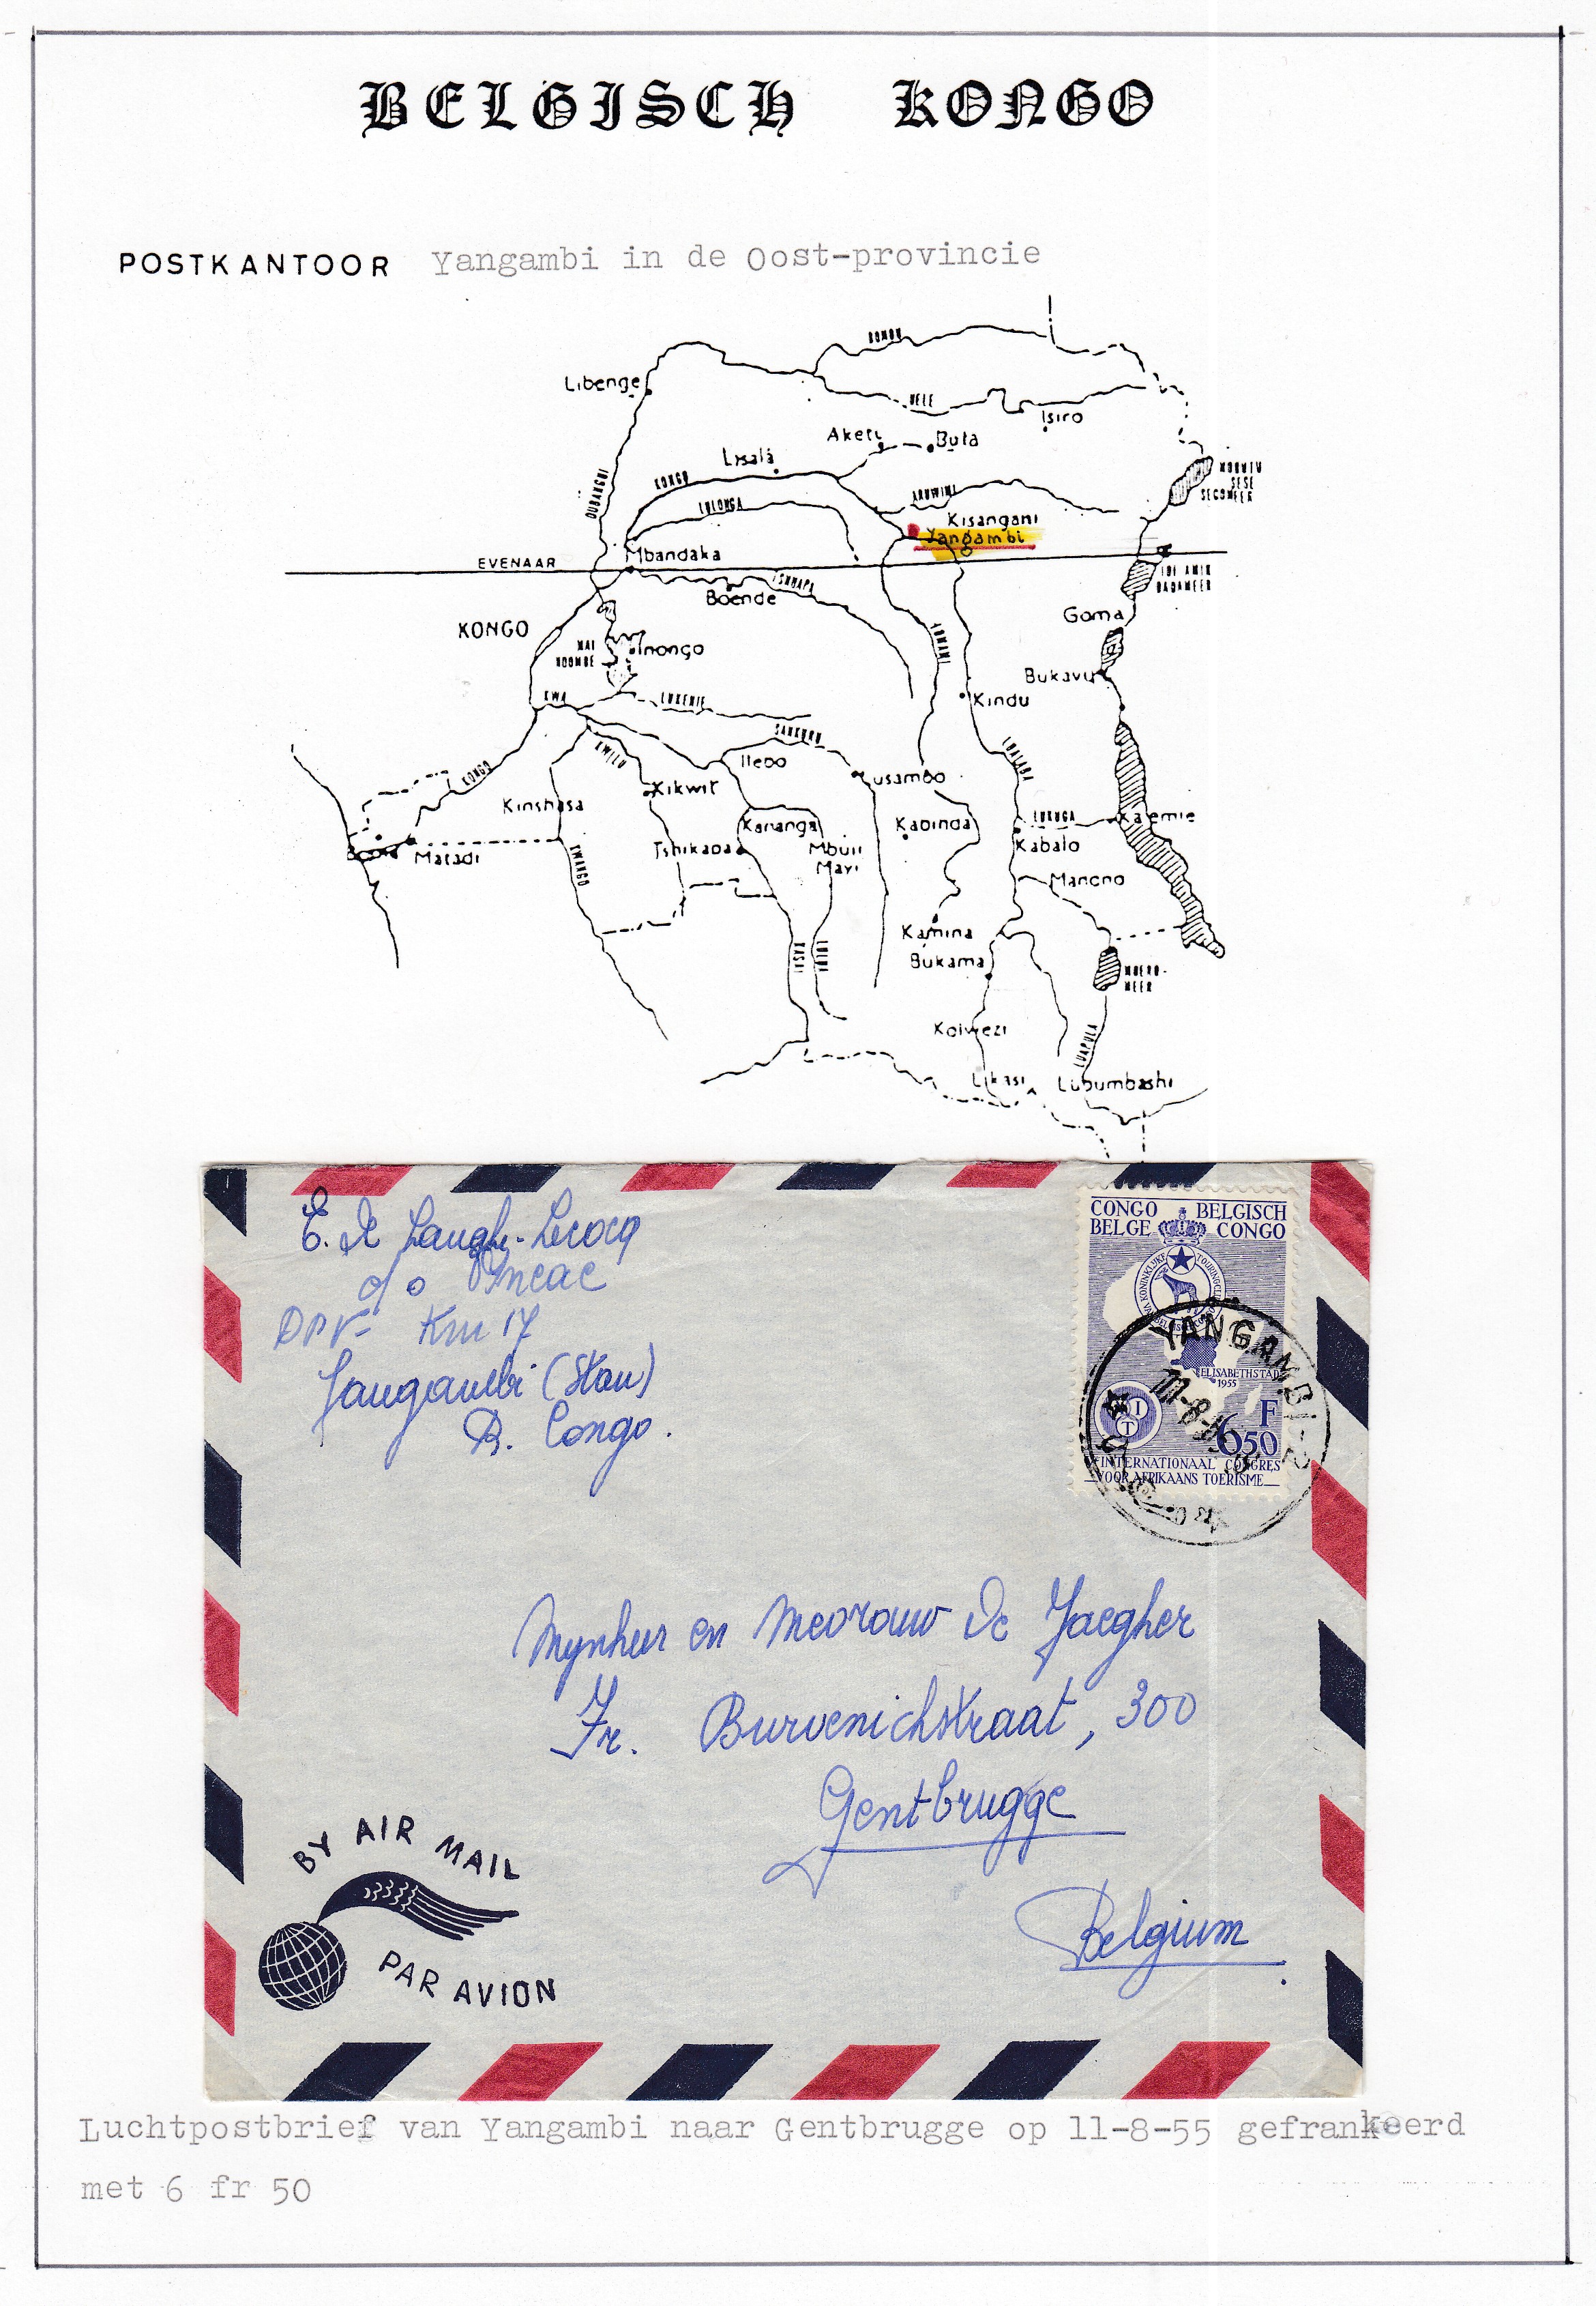 BELGISCH KONGO
POSTKANTOOR Yangambi in de Oost-provincie
BOMOU
Libenge
UELE
Isiro
Aketi
Buta
Lisala
KONGO
OUBANGUI
LULONGA
ARUWIMI
MOBUTU
SESE
SEGOMEER
Kisangani
Yangambi
Mbandaka
EVENAAR
TSHUAPA
IDI AMIN
DADAMEER
Boende
Goma
KONGO
LOMAMI
MAI
NDOMBE
Inongo
Bukavu
KWA
LUKENIE
Kindu
SANKURU
KWILU
Ilebo
LUALABA
KONGO
Kikwit
Lusambo
Kinshasa
Kananga
Kabinda
LUKUGA
Kalemie
Boma
Matadi
KWANGO
Tshikapa
Mbuji
Mayi
Kabalo
Manono
Kamina
KASAI
LULUA
Bukama
MOERO-
MEER
Kolwezi
LUAPULA
Likasi
Lubumbashi
CONGO BELGISCH
BELGE CONGO
E. De Langhe-Lecocq
c/o Ineac
DPV- Km 17
Yangambi (Stan)
B. Congo.
YANGAMBI-
ELISABETHSTAD
1955
11-8-55
F
6.50
INTERNATIONAAL CONGRES
VOOR AFRIKAANS TOERISME
Mynheer en Mevrouw De Jaegher
Fr. Burvenichstraat, 300
Gentbrugge
Belgium
BY AIR MAIL
PAR AVION
Luchtpostbrief van Yangambi naar Gentbrugge op 11-8-55 gefrankeerd
met 6 fr 50